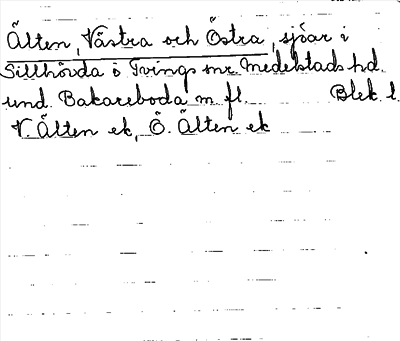 Älten, Västra och Östra, sjöar i
Sillhövda o Tvings snr Medelstads hd.
und. Bakareboda m fl. Blek. l.
V. Älten ek, Ö. Älten ek